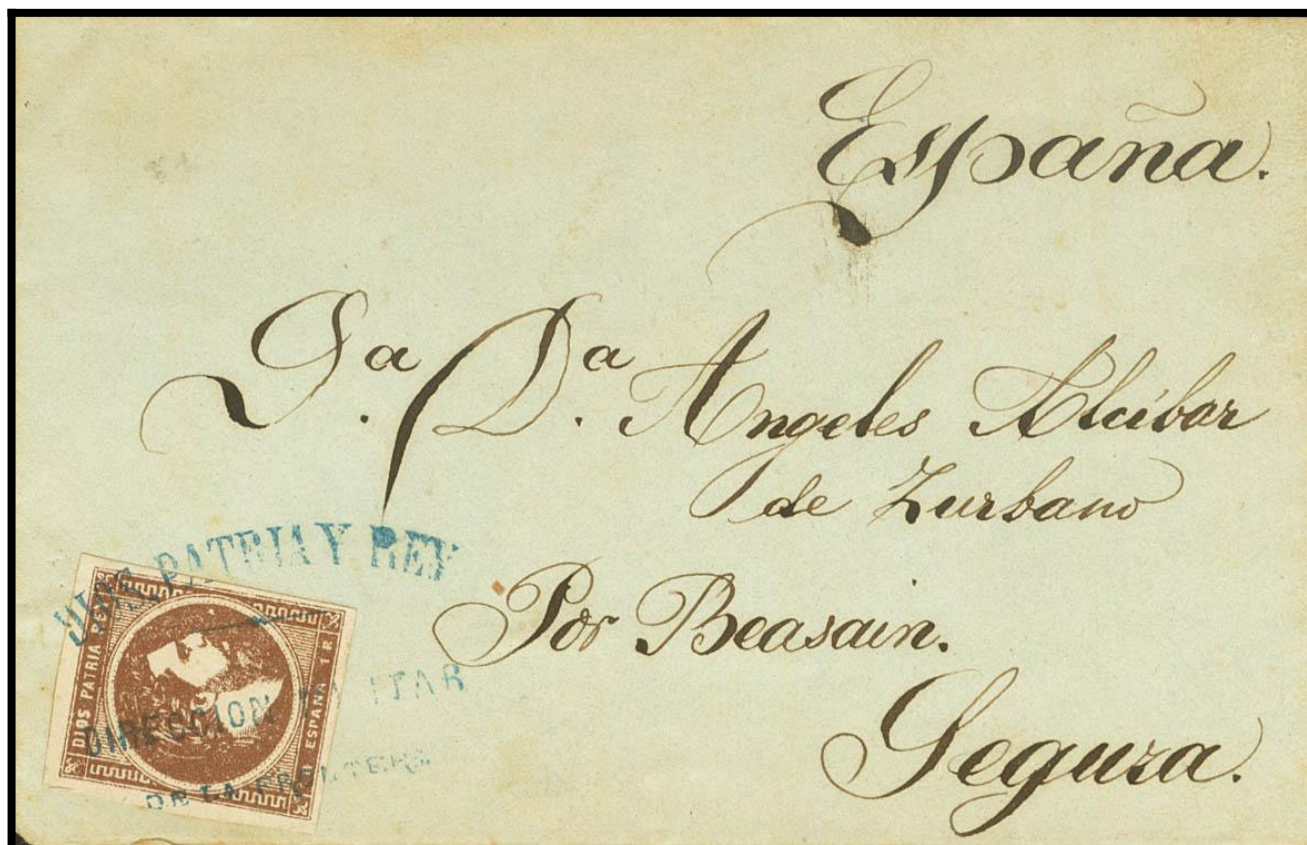 España.
Sa. Da. Angeles Alcíbar
de Zurbano
Por Beasain.
Segura.
DIOS PATRIA Y REY
DIRECCION MILITAR
DE LA FRONTERA
DIOS PATRIA REY
ESPAÑA 1 R.